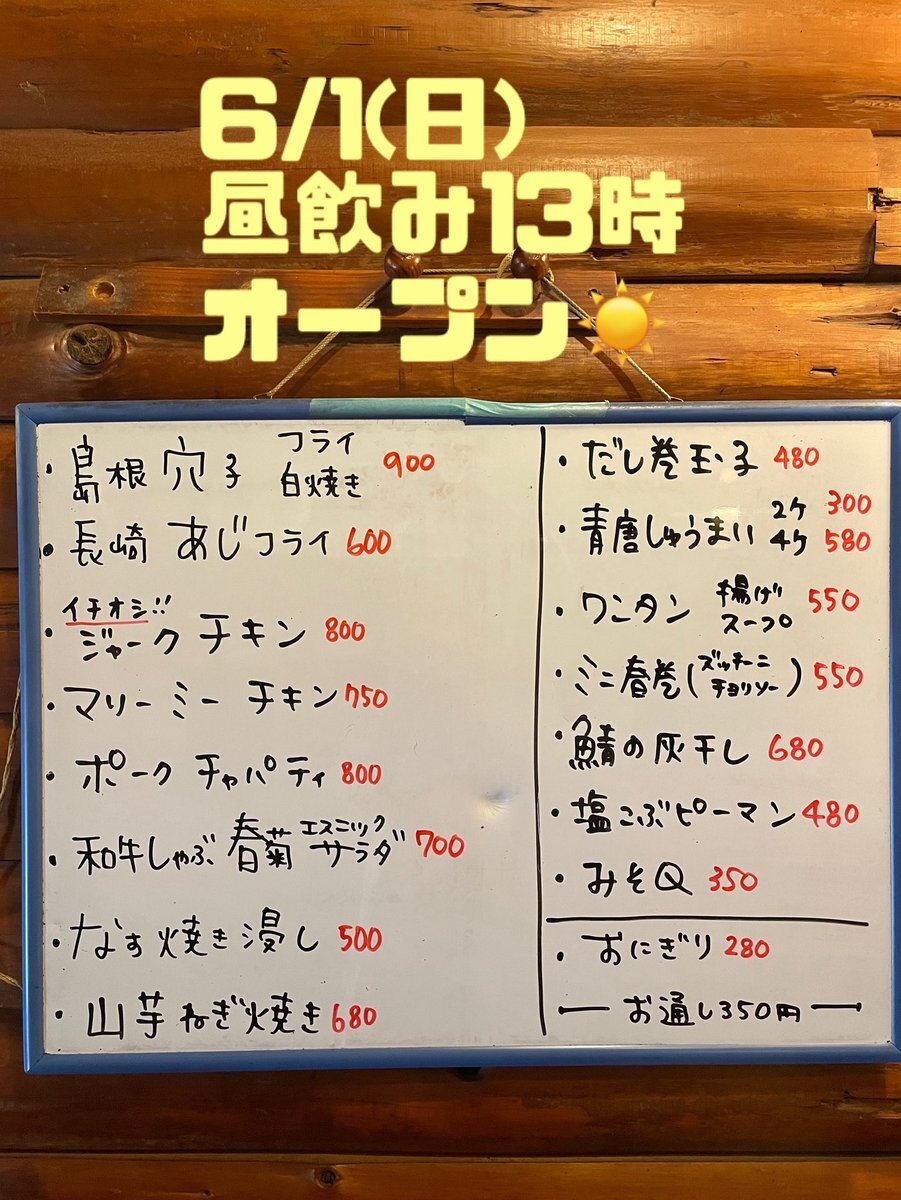 6/1(日)
昼飲み13時
オープン☀️
・島根穴子 フライ 白焼き 900
・長崎 あじフライ 600
イチオシ!!
・ジャークチキン 800
・マリーミーチキン 750
・ポークチャパティ 800
・和牛しゃぶ春菊エスニックサラダ 700
・なす焼き浸し 500
・山芋ねぎ焼き 680
・だし巻玉子 480
・青唐しゅうまい 2ケ 300
4ケ 580
・ワンタン 揚げ スープ 550
・ミニ春巻(ズッキーニ チョリソー) 550
・鯖の灰干し 680
・塩こぶピーマン 480
・みそQ 350
・おにぎり 280
― お通し350円 ―